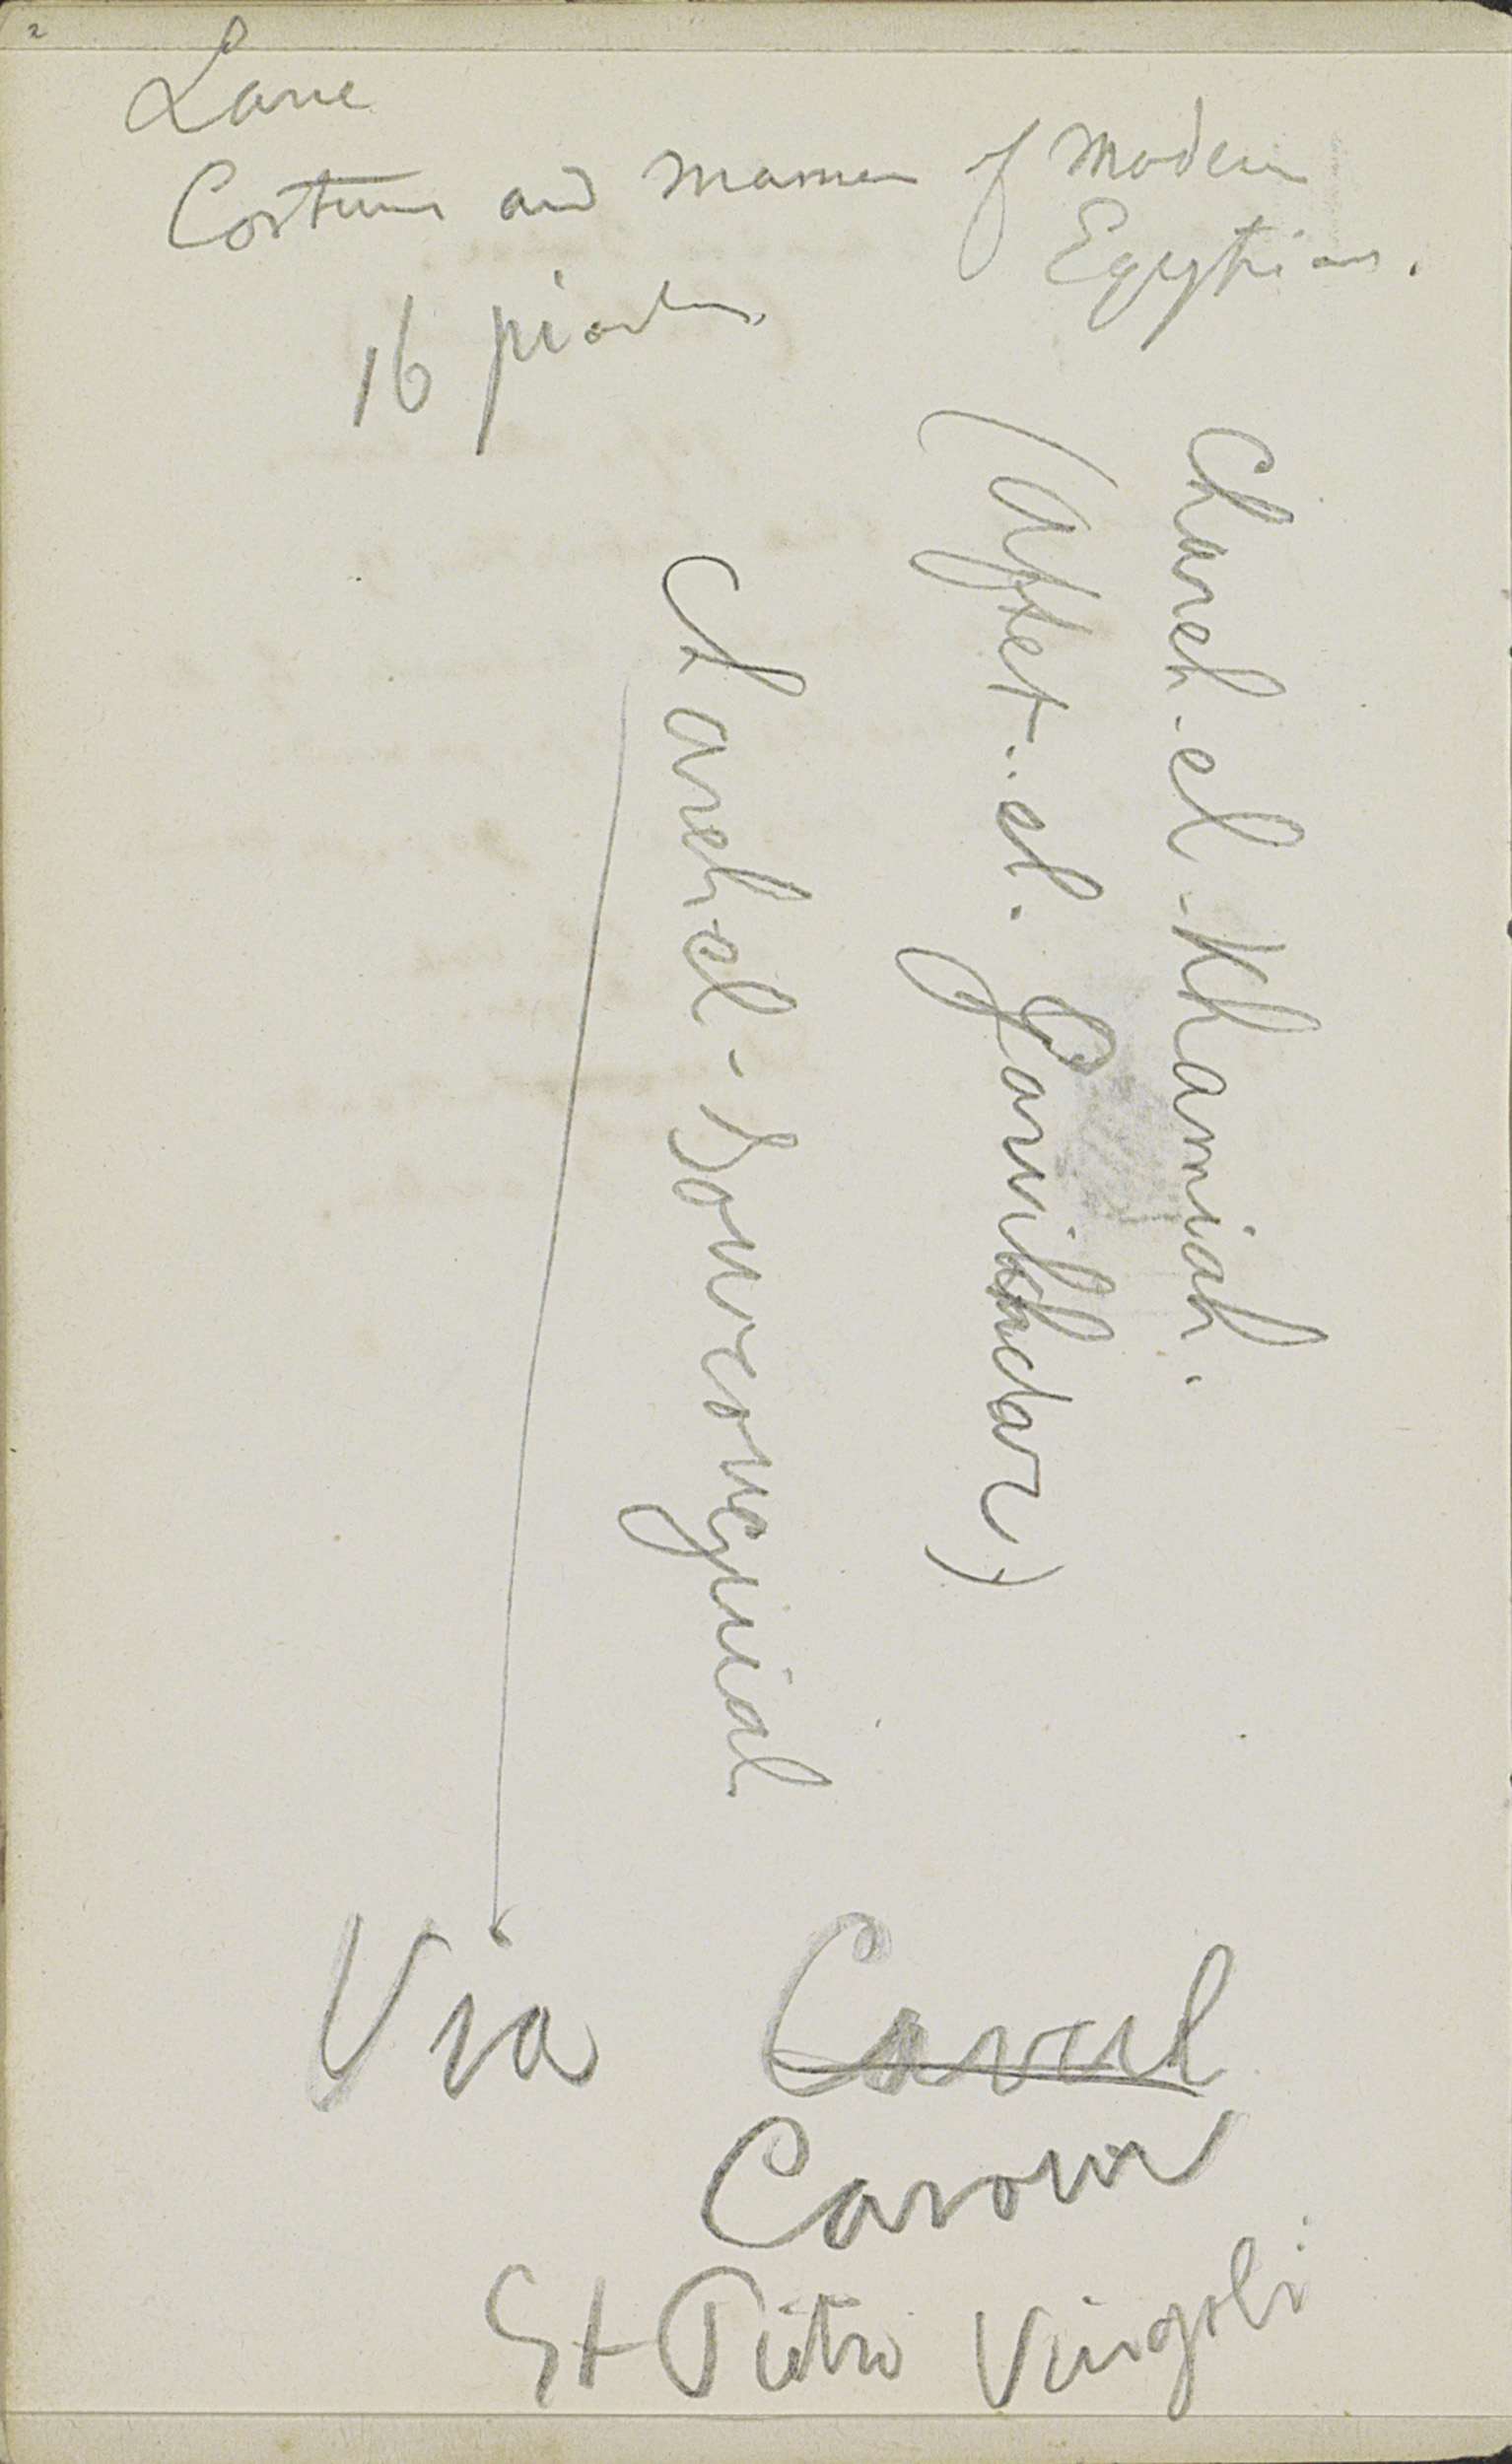 2
Lane
Costums and manner of modern
Egyptians.
16 piasters
Chareh-el-Khamiah.
(Affet..el. Gamihhdar)
Chareh-el-Souroughiah
Via Cavul
Cavour
St Pietro Vingoli